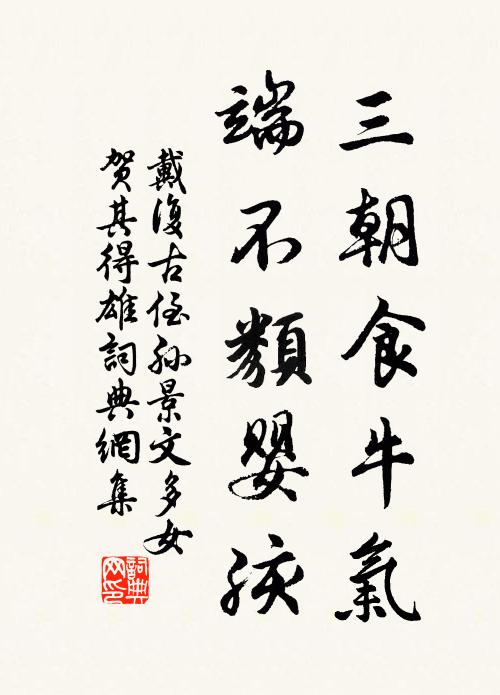 三朝食牛氣
端不類嬰孩
戴復古侄孙景文多女
贺其得雄詞典網集
詞典网印